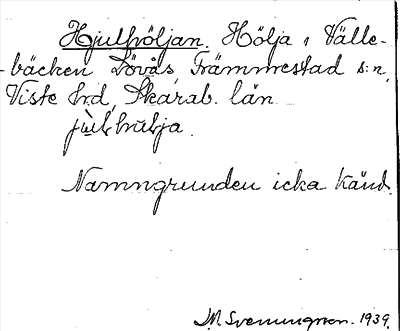 Hjulhöljan. Hölja i Välle-
bäcken Lövås, Främmestad s:n,
Viste hrd, Skarab. län.
jùlhulja.
Namngrunden icka känd.
M Svenungson. 1939.